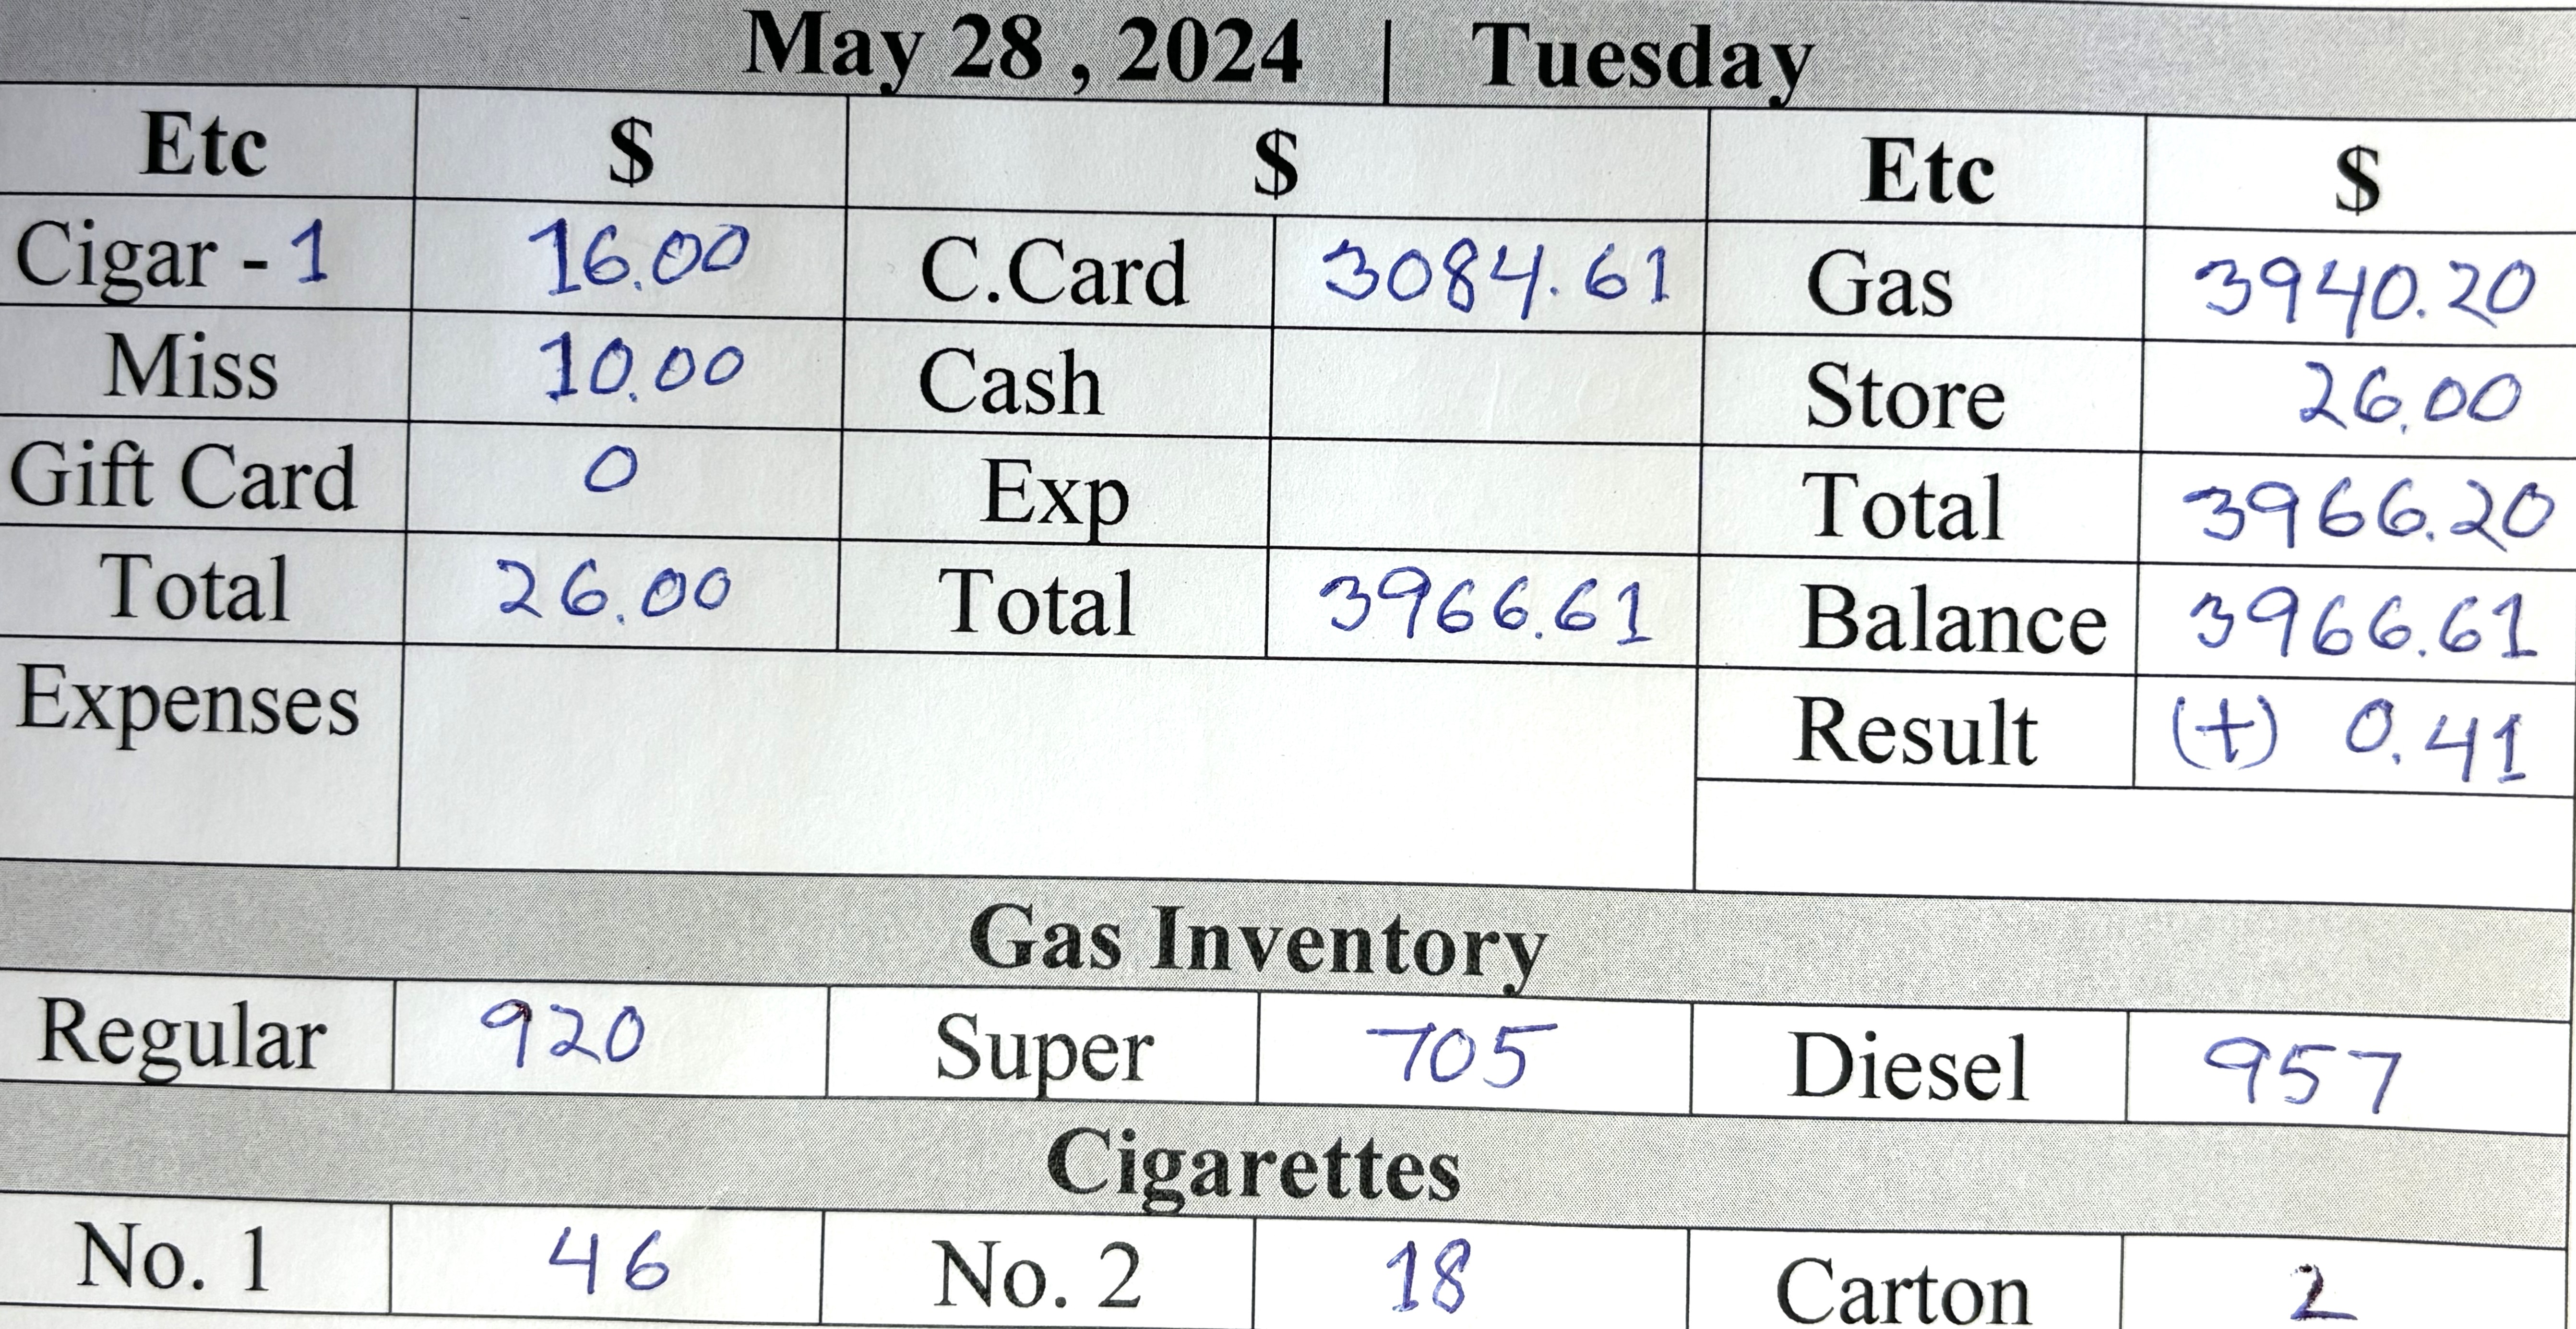 May 28 , 2024 | Tuesday
Etc $ $ Etc $
Cigar - 1 16.00 C.Card 3084.61 Gas 3940.20
Miss 10.00 Cash Store 26.00
Gift Card 0 Exp Total 3966.20
Total 26.00 Total 3966.61 Balance 3966.61
Expenses Result (+) 0.41
Gas Inventory
Regular 920 Super 705 Diesel 957
Cigarettes
No. 1 46 No. 2 18 Carton 2